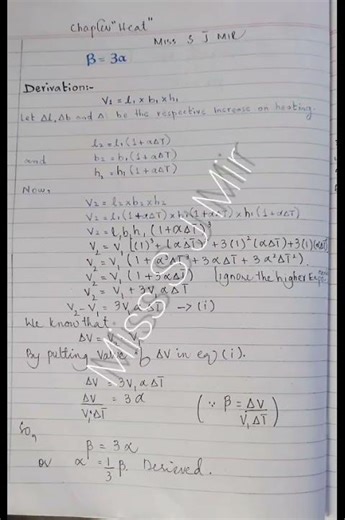 Chapter "Heat"
Miss S J MIR
β = 3α
Derivation:-
V₁ = l₁ x b₁ x h₁
Let Δl, Δb and Δ be the respective increase on heating.
l₂ = l₁(1+αΔT)
and b₂ = b₁(1+αΔT)
h₂ = h₁(1+αΔT)
Now,
V₂ = l₂ x b₂ x h₂
V₂ = l₁(1+αΔT) x b₁(1+αΔT) x h₁(1+αΔT)
V₂ = l₁b₁h₁(1+αΔT)³
V₂ = V₁[(1)³+(αΔT)³+3(1)²(αΔT)+3(1)(αΔT)
V₂ = V₁(1+α³ΔT³+3αΔT+3α²ΔT²)
V₂ = V₁(1+3αΔT) (Ignore the higher
V₂ = V₁+3V₁αΔT
V₂-V₁ = 3V₁αΔT → (i)
We know that
ΔV = V₂-V₁
By putting value of ΔV in eq (i).
ΔV = 3V₁αΔT
ΔV/V₁ΔT = 3α (∵ β = ΔV/V₁ΔT)
So,
β = 3α
or α = 1/3 β. Derieved.
Miss S J Mir